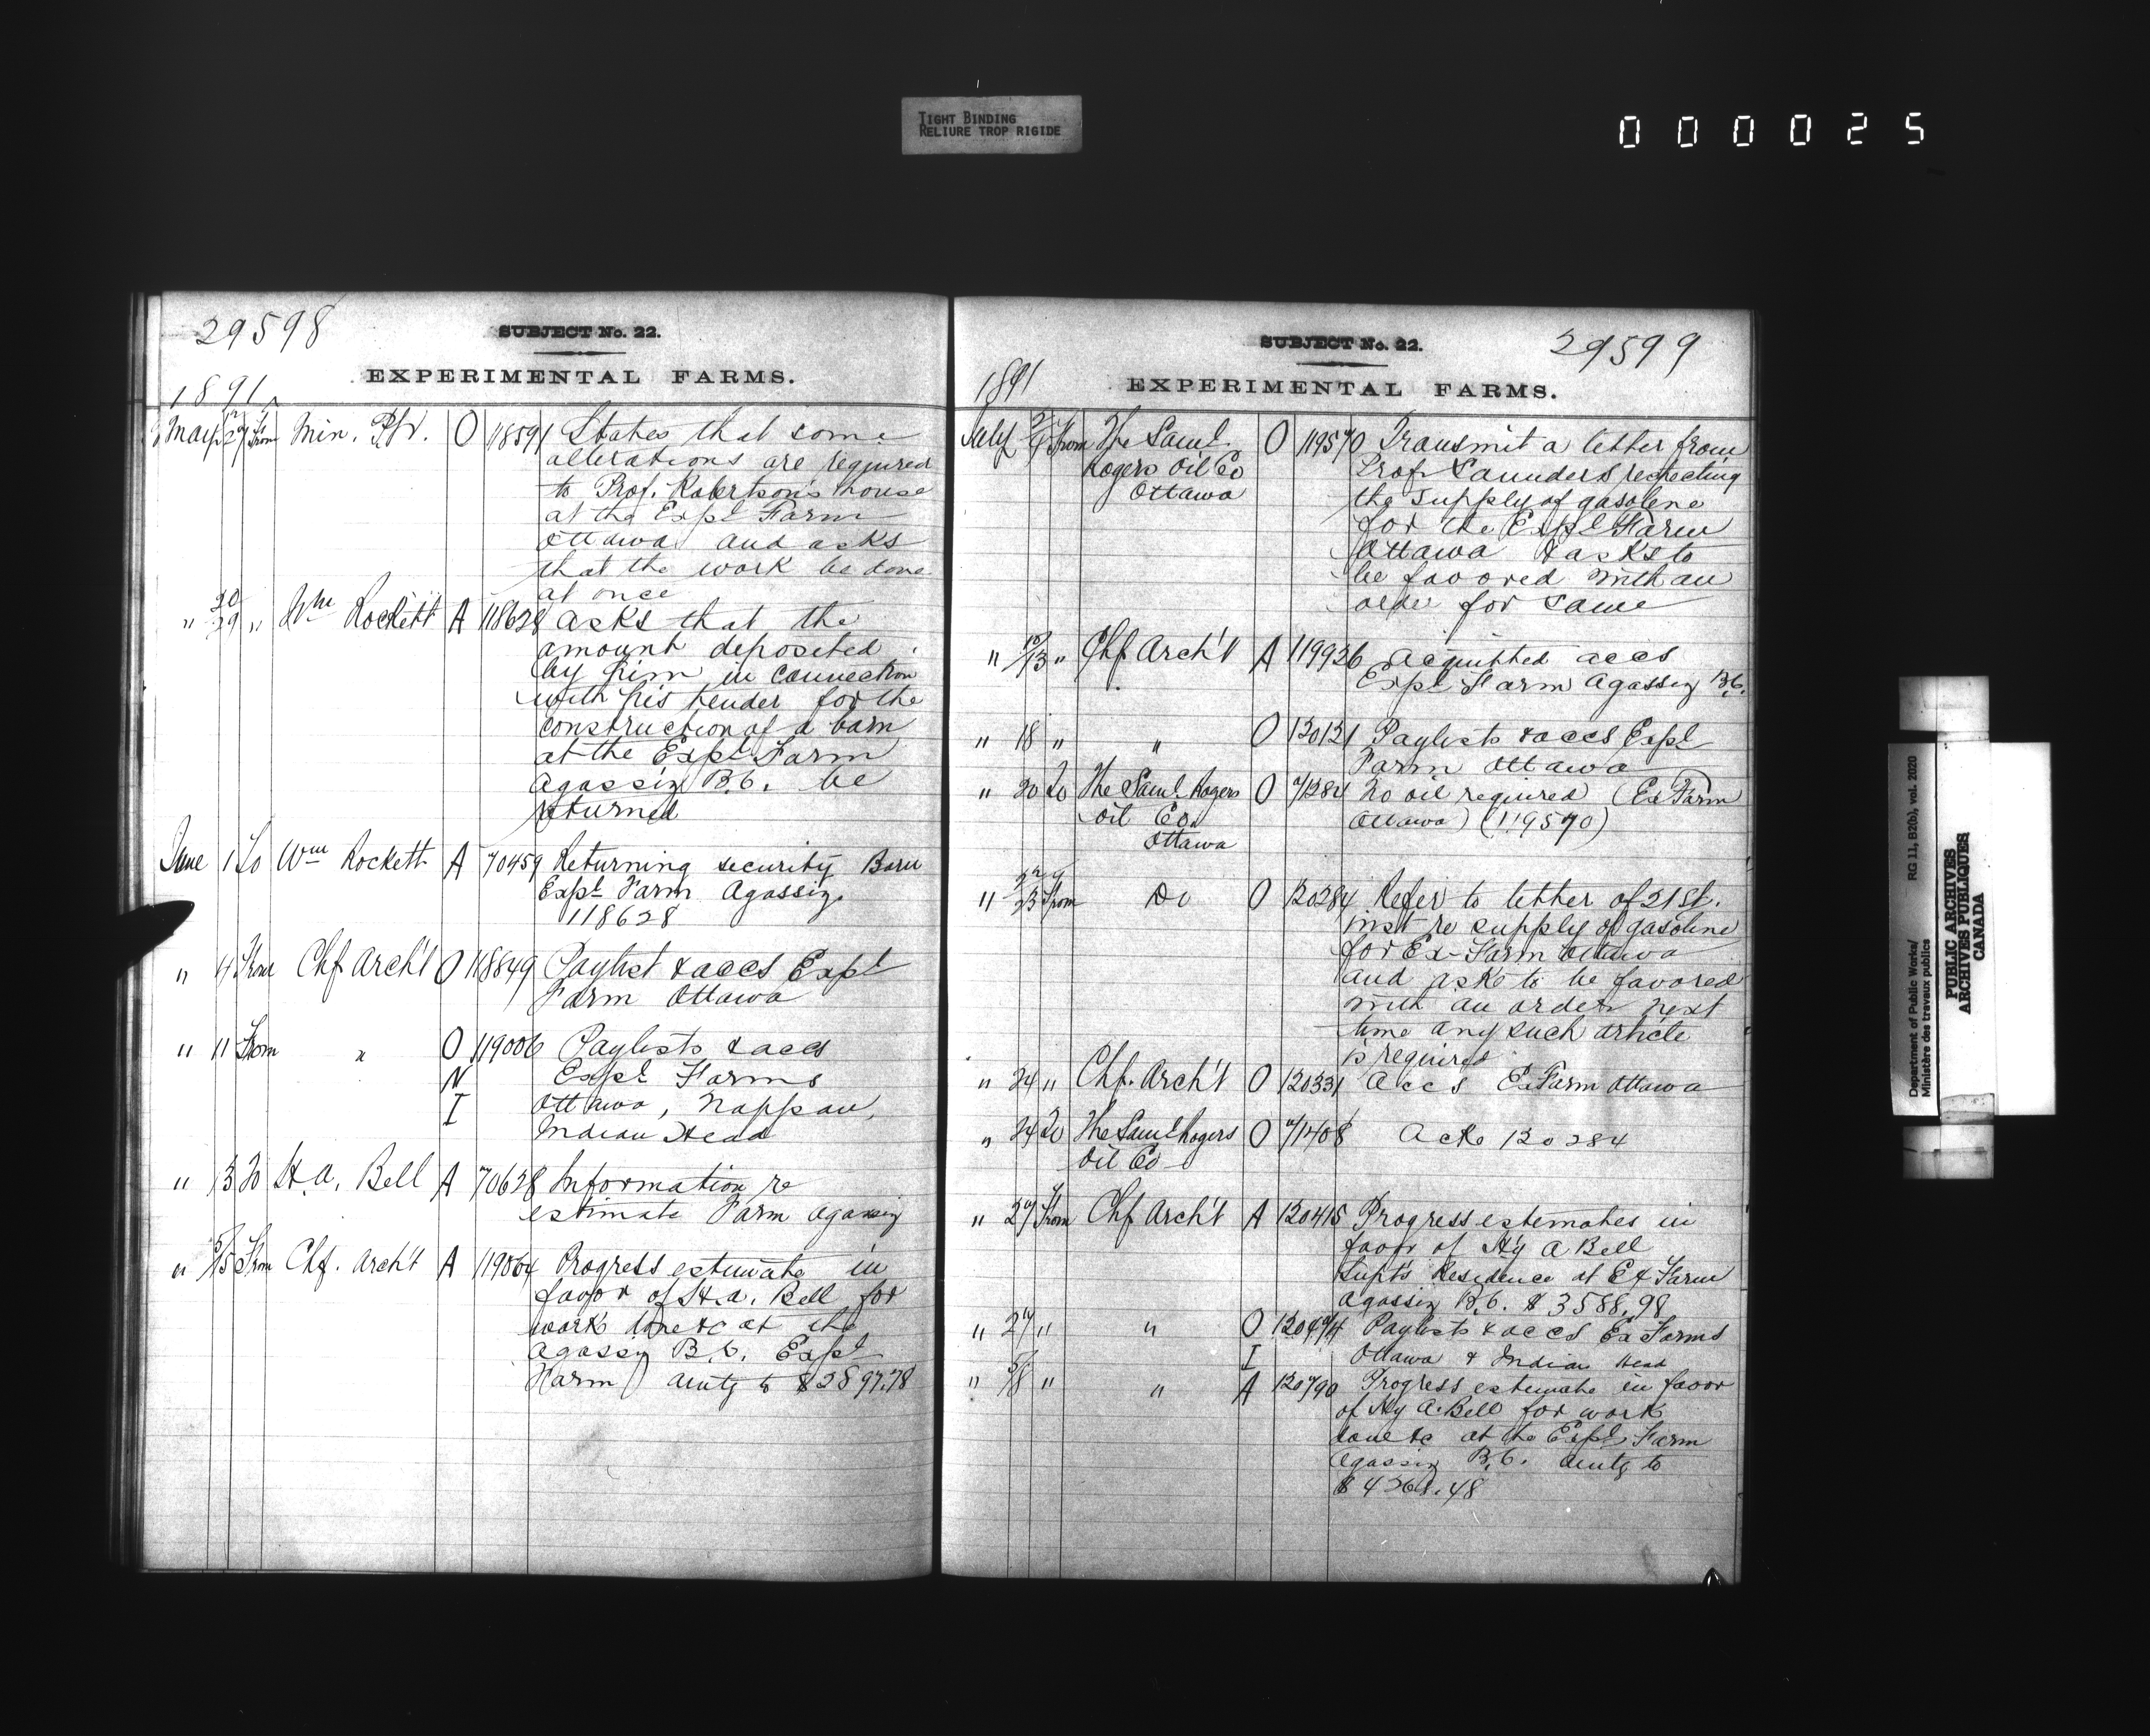 TIGHT BINDING
RELIURE TROP RIGIDE
000025
29598
SUBJECT No. 22.
EXPERIMENTAL FARMS.
1891
May 27 From Min. O 118591 States that some
alterations are required
to Prof. Robertson's house
at the Expl Farm
Ottawa and asks
that the work be done
at once
" 20/29 " Wm Rockett A 118628 asks that the
amount deposited
by him in connection
with his tender for the
construction of a barn
at the Expl Farm
Agassiz B.C. be
returned
June 1 To Wm Rockett A 70459 Returning security Barn
Expl Farm Agassiz.
118628
" 4 From Chf Arch't O 118849 Paylist & accs Expl
Farm Ottawa
" 11 From " O 119006 Paylists & accs
N Expl Farms
I Ottawa, Nappan,
Indian Head
" 13 To H.A. Bell A 70628 Information re
estimate Farm Agassiz
" 5/15 From Chf. Arch't A 119064 Progress estimate in
favor of H.A. Bell for
work done &c at the
Agassiz B.C. Expl
Farm amtg to $2897.78
SUBJECT No. 22.
29599
1891
EXPERIMENTAL FARMS.
July From The Saml. O 119570 Transmit a letter from
Rogers Oil Co Prof Saunders respecting
Ottawa the supply of gasolene
for the Expl Farm
Ottawa & asks to
be favored with an
order for same
" 13 " Chf Arch't A 119926 Acquitted accs
Expl Farm Agassiz B.C.
" 18 " " O 120121 Paylists & accs Expl
Farm Ottawa
" 20 To The Saml. Rogers O 71284 No oil required (Ex Farm
Oil Co. Ottawa) (119570)
Ottawa
" 23 From Do O 120284 Refer to letter of 21st.
inst re supply of gasoline
for Ex-Farm Ottawa
and asks to be favored
with an order next
time any such article
is required
" 24 " Chf. Arch't O 120331 Accs Ex Farm Ottawa
" 24 To The Saml Rogers O 71408 Acks 120284
Oil Co
" 27 From Chf Arch't A 120415 Progress estimates in
favor of Hy A Bell
Supt's Residence at Ex Farm
Agassiz B.C. $3588.98
" 27 " " O Paylists & accs Ex Farms
I Ottawa & Indian Head
" " " A 120790 Progress estimate in favor
of Hy A. Bell for work
done &c at the Expl Farm
Agassiz B.C. amtg to
Department of Public Works/ RG 11, B2(b), vol. 2020
Ministère des travaux publics
PUBLIC ARCHIVES
ARCHIVES PUBLIQUES
CANADA